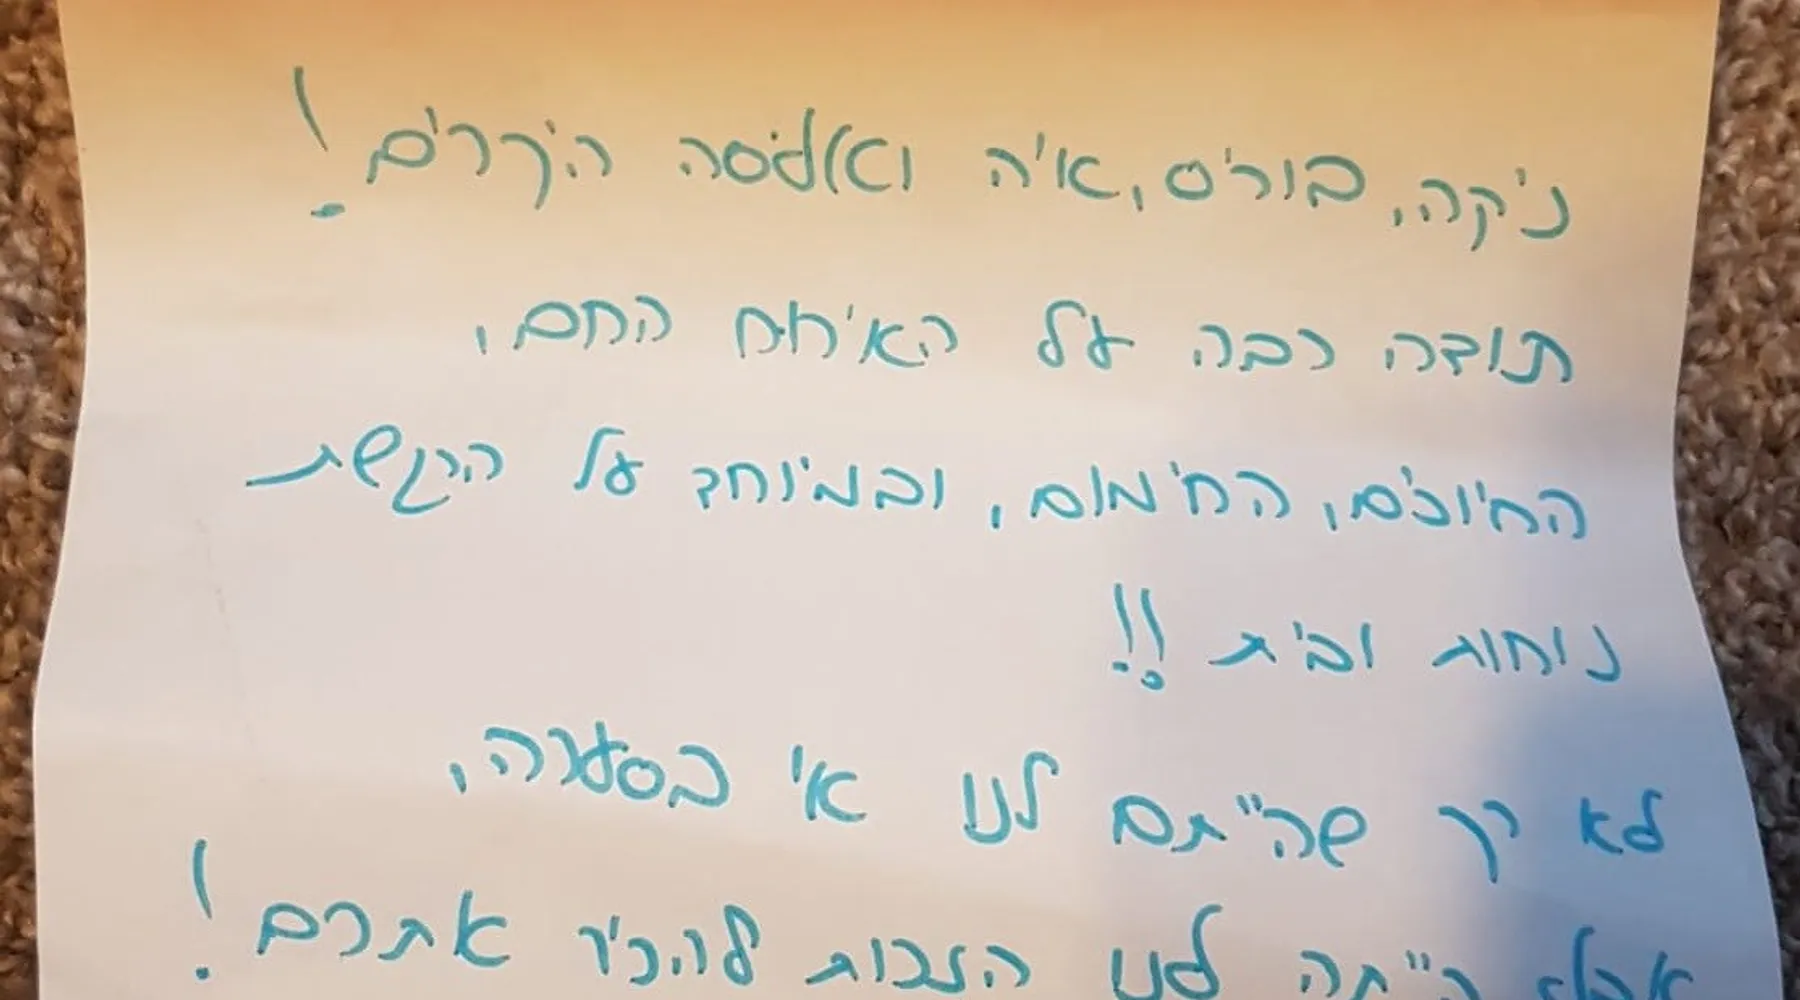 ניקה, בוריס, איה ואליסה היקרים!
תודה רבה על האירוח החם,
החיוכים, החימום, ובמיוחד על הרגשת
נוחות ובית!!
לא רק שהייתם לנו אי בסערה,
אלא הייתה לנו הזכות להכיר אתכם!